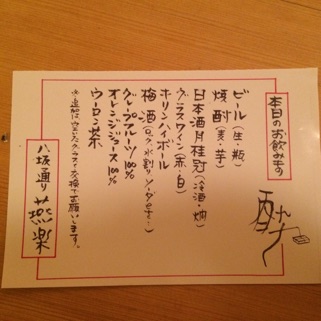 本日のお飲みもの
ビール(生・瓶)
焼酎(麦・芋)
日本酒月桂冠(冷酒・燗)
グラスワイン(赤・白)
ホリンハイボール
梅酒(ロック、水割り、ソーダ
グレープフルーツ100%
オレンジジュース100%
ウーロン茶
※追加は空いたグラスと交換でお願いします。
八坂通り 燕楽